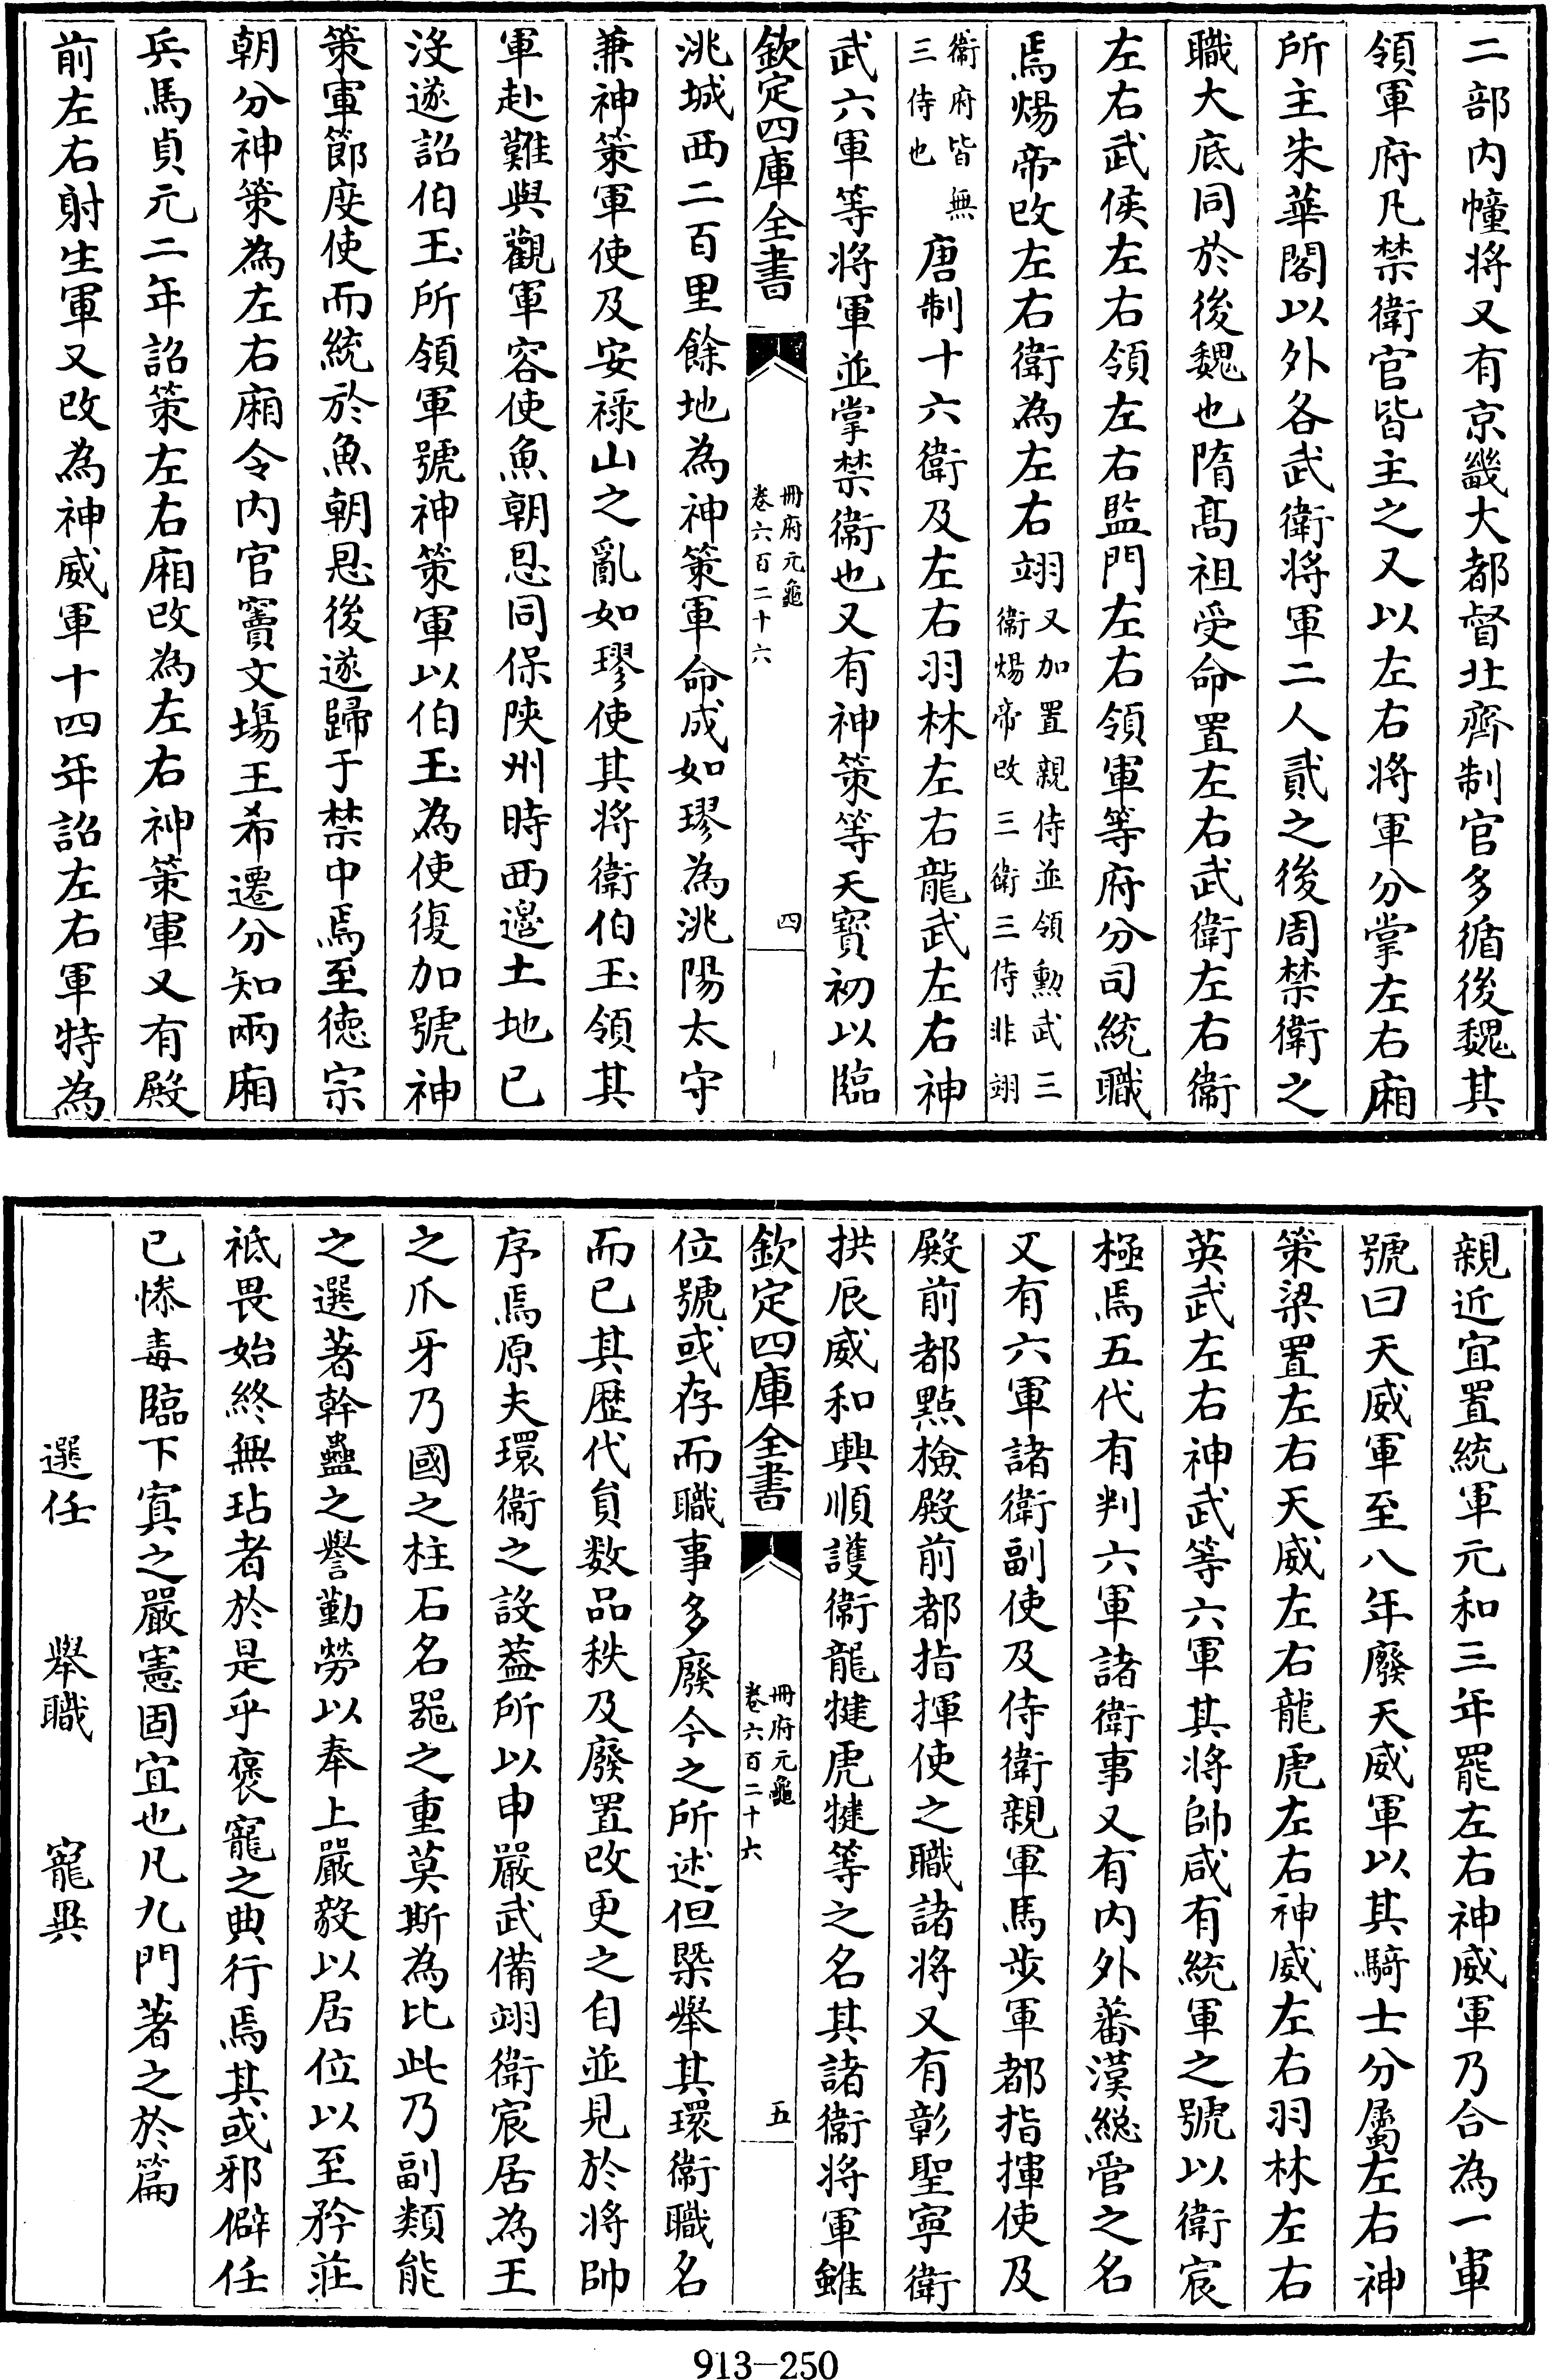 二部内幢将又有京畿大都督北齊制官多循後魏其
領軍府凡禁衛官皆主之又以左右将軍分掌左右廂
所主朱華閣以外各武衛将軍二人貳之後周禁衛之
職大底同於後魏也隋髙祖受命置左右武衛左右衛
左右武侯左右領左右監門左右領軍等府分司統職
焉煬帝改左右衛為左右翊又加置親侍並領勲武三
衛煬帝改三衛三侍非翊
衛府皆無
三侍也
唐制十六衛及左右羽林左右龍武左右神
武六軍等将軍並掌禁衛也又有神策等天寳初以臨
欽定四庫全書
冊府元龜
卷六百二十六
四
洮城西二百里餘地為神策軍命成如璆為洮陽太守
兼神策軍使及安禄山之亂如璆使其将衛伯玉領其
軍赴難與觀軍容使魚朝恩同保陜州時西邊土地已
沒遂詔伯玉所領軍號神策軍以伯玉為使復加號神
策軍節度使而統於魚朝恩後遂歸于禁中焉至徳宗
朝分神策為左右廂令内官竇文塲王希遷分知兩廂
兵馬貞元二年詔策左右廂改為左右神策軍又有殿
前左右射生軍又改為神威軍十四年詔左右軍特為
親近宜置統軍元和三年罷左右神威軍乃合為一軍
號曰天威軍至八年廢天威軍以其騎士分屬左右神
策梁置左右天威左右龍虎左右神威左右羽林左右
英武左右神武等六軍其将帥咸有統軍之號以衛宸
極焉五代有判六軍諸衛事又有内外蕃漢緫管之名
又有六軍諸衛副使及侍衛親軍馬步軍都指揮使及
殿前都點檢殿前都指揮使之職諸将又有彰聖寧衛
拱辰威和興順護衛龍犍虎犍等之名其諸衛将軍雖
欽定四庫全書
冊府元龜
卷六百二十六
五
位號或存而職事多廢今之所述但槩舉其環衛職名
而已其歴代員数品秩及廢置改更之自並見於将帥
序焉原夫環衛之設葢所以申嚴武備翊衛宸居為王
之爪牙乃國之柱石名噐之重莫斯為比此乃副類能
之選著幹蠱之譽勤勞以奉上嚴毅以居位以至矜莊
祗畏始終無玷者於是乎褒寵之典行焉其或邪僻任
已慘毒臨下寘之嚴憲固宜也凡九門著之於篇
選任　舉職　寵異
913—250